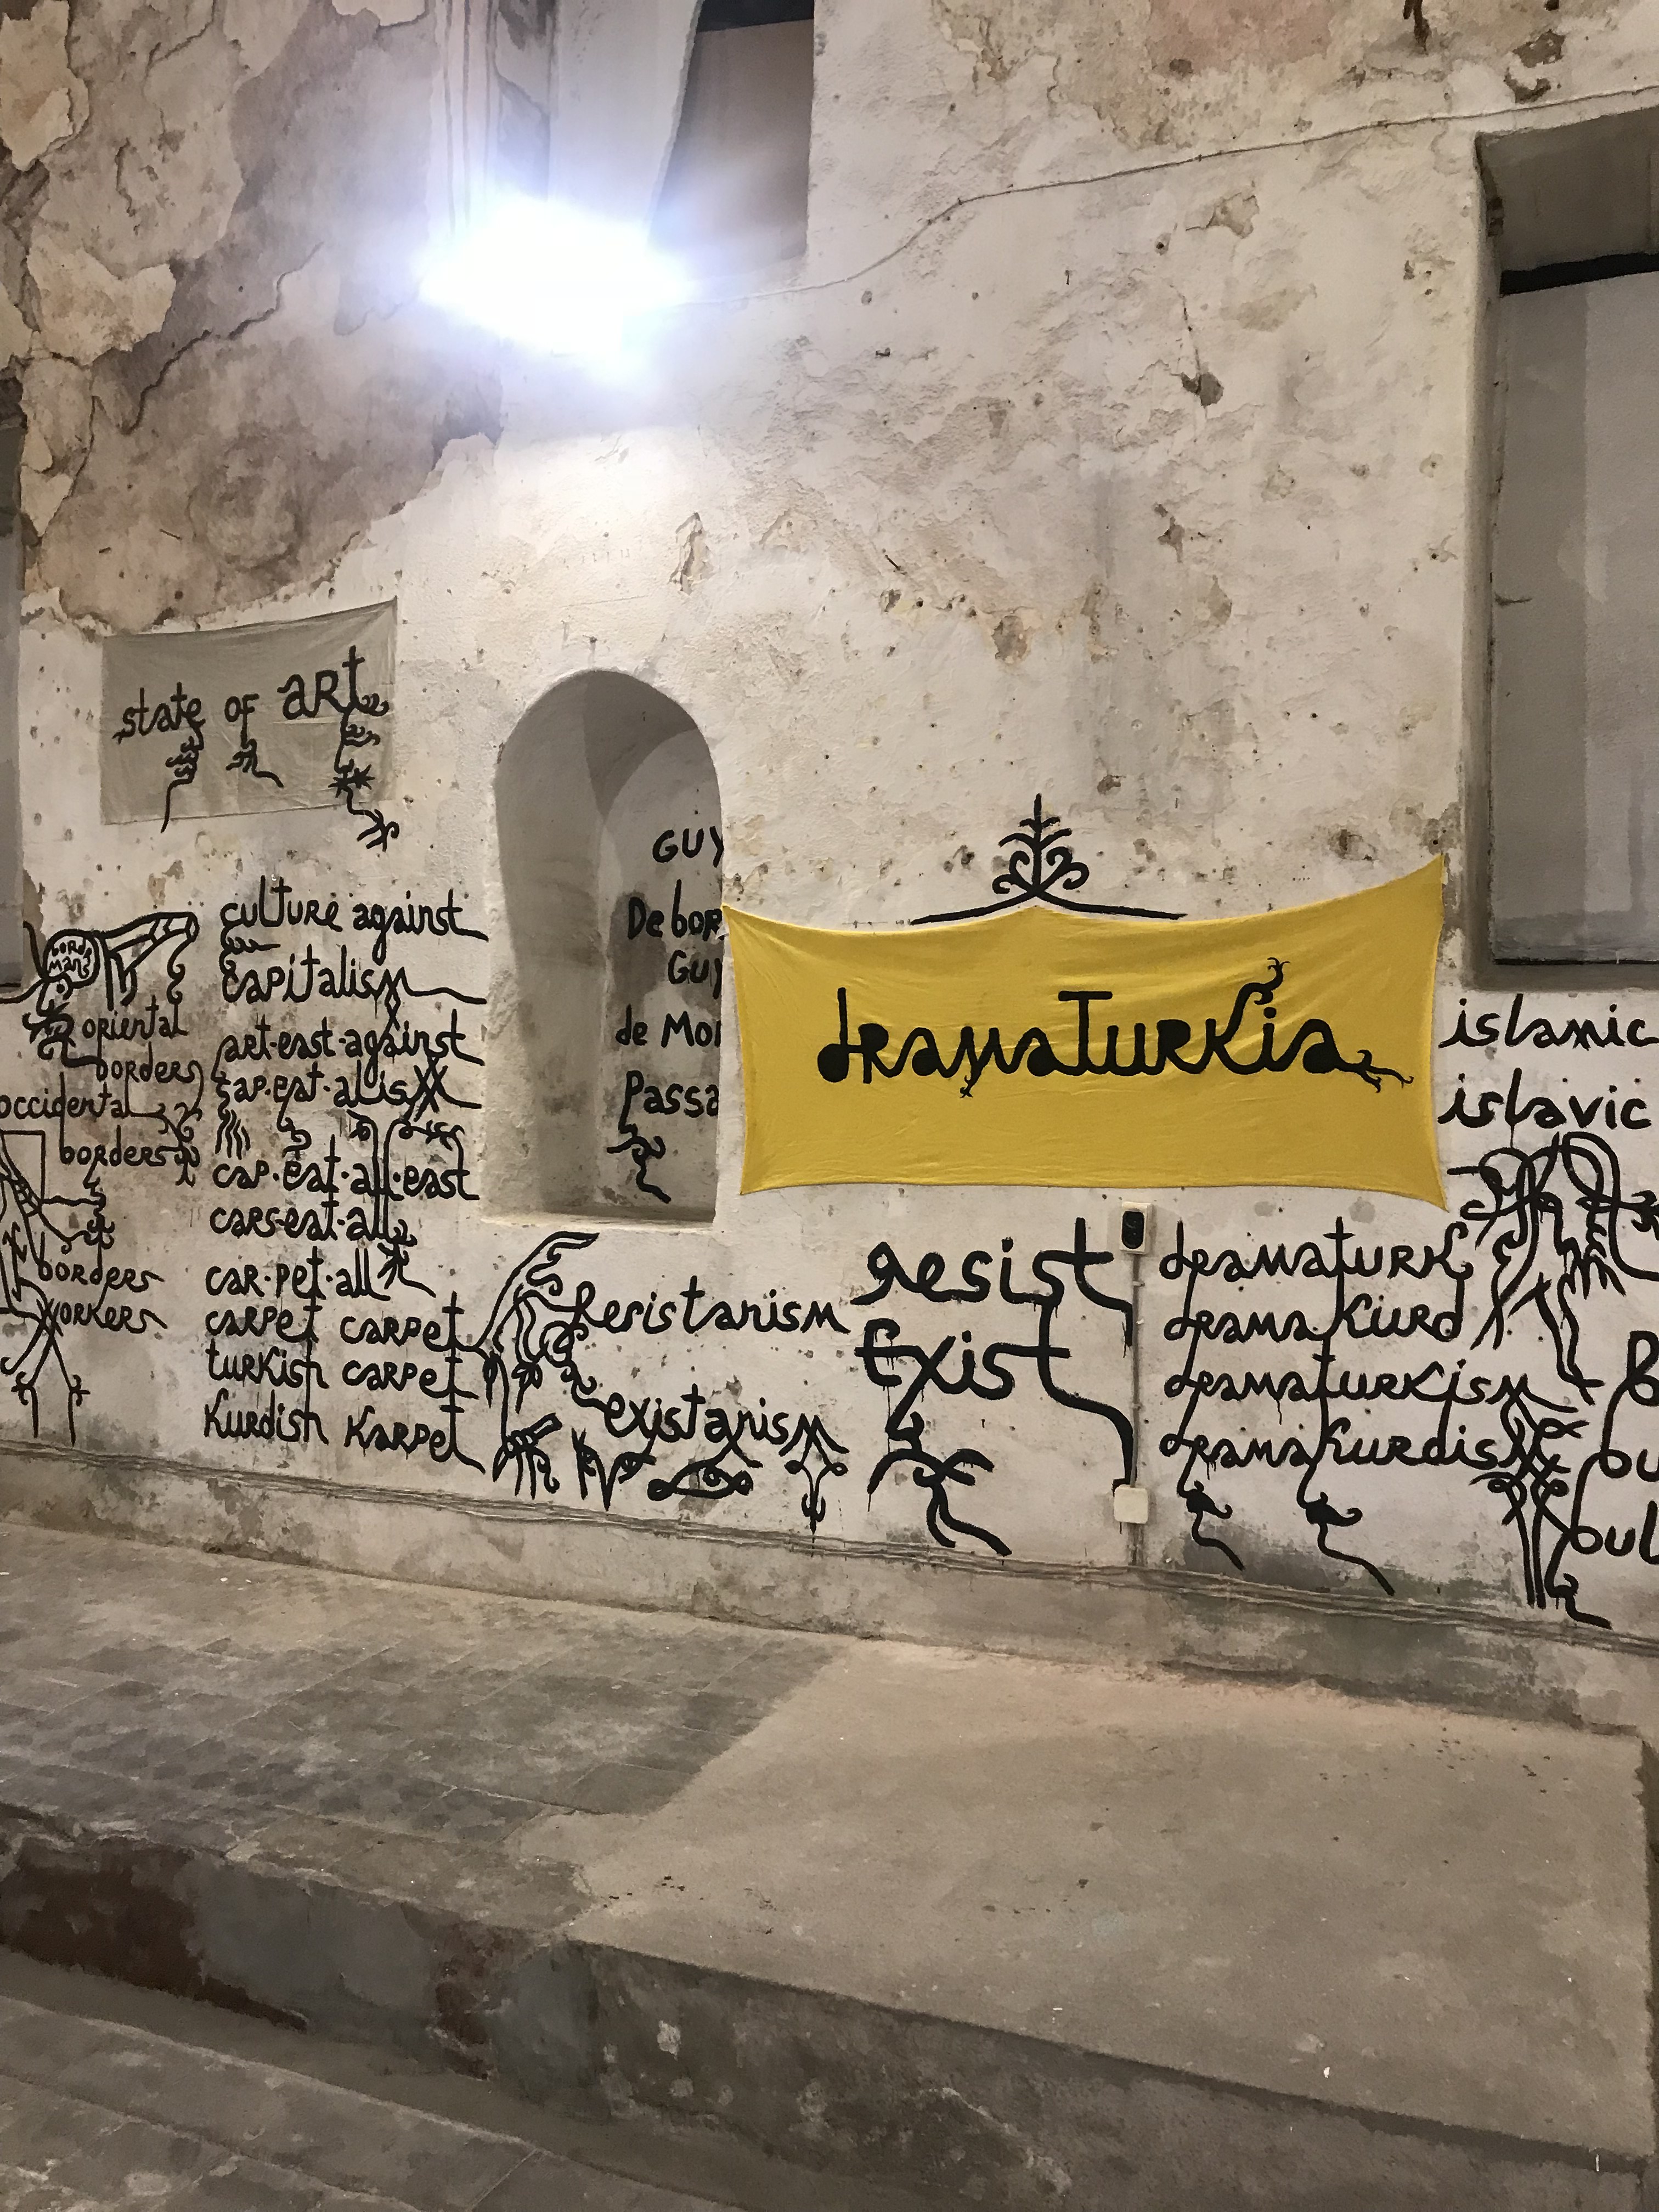 state of ART
borders
oriental
borders
occidental
borders
borders
workers
culture against
capitalism
art-east-against
cap.eat.alism
cap.eat.all.east
cars-eat-all
car.pet.all
carpet carpet
turkish carpet
Kurdish Karpet
GUY
Debor
Guy
de Mo
Passa
Resistanism
existanism
dramaTURKia
resist
Exist
dramaTURK
drama Kurd
dramaturkism
dramakurdism
islamic
islavic